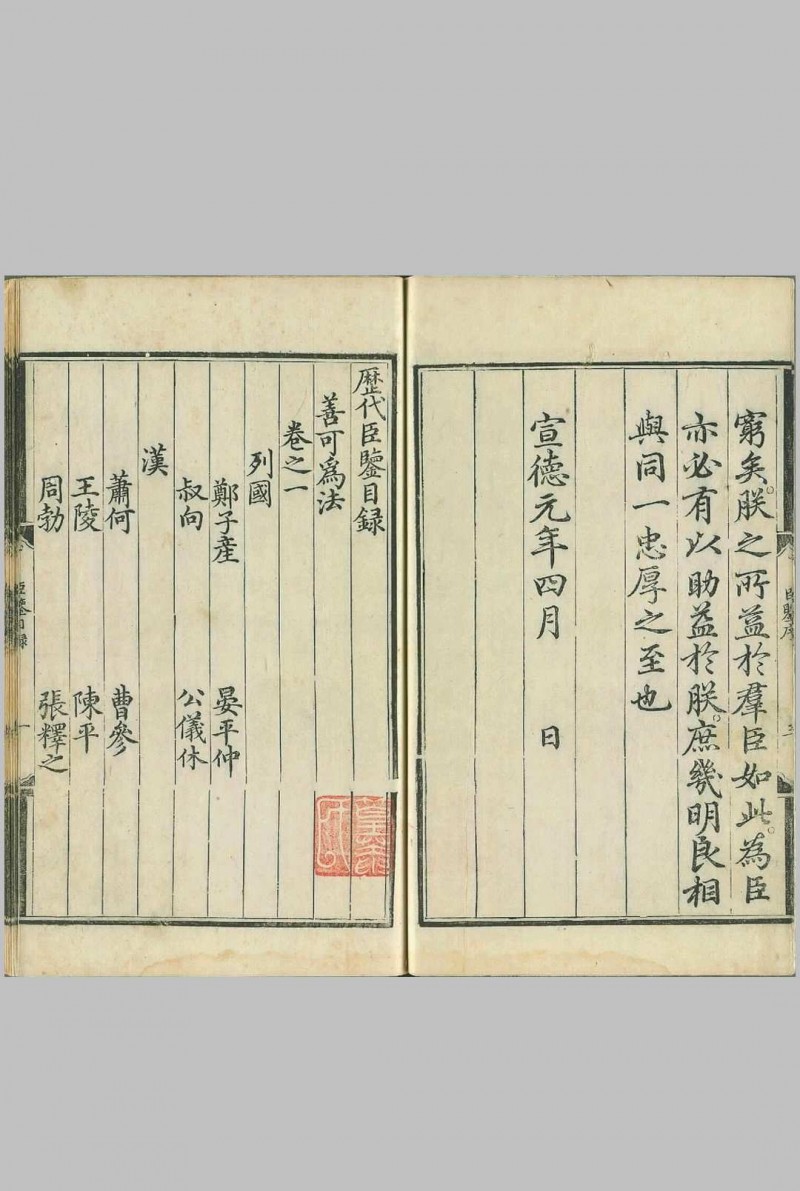 窮矣。朕之所益於羣臣如此。為臣
亦必有以助益於朕。庶幾明良相
與同一忠厚之至也
宣德元年四月　日
歷代臣鑒目録
善可為法
卷之一
列國
鄭子產　晏平仲
叔向　公儀休
漢
蕭何　曹參
王陵　陳平
周勃　張釋之
臣鑒目録　一